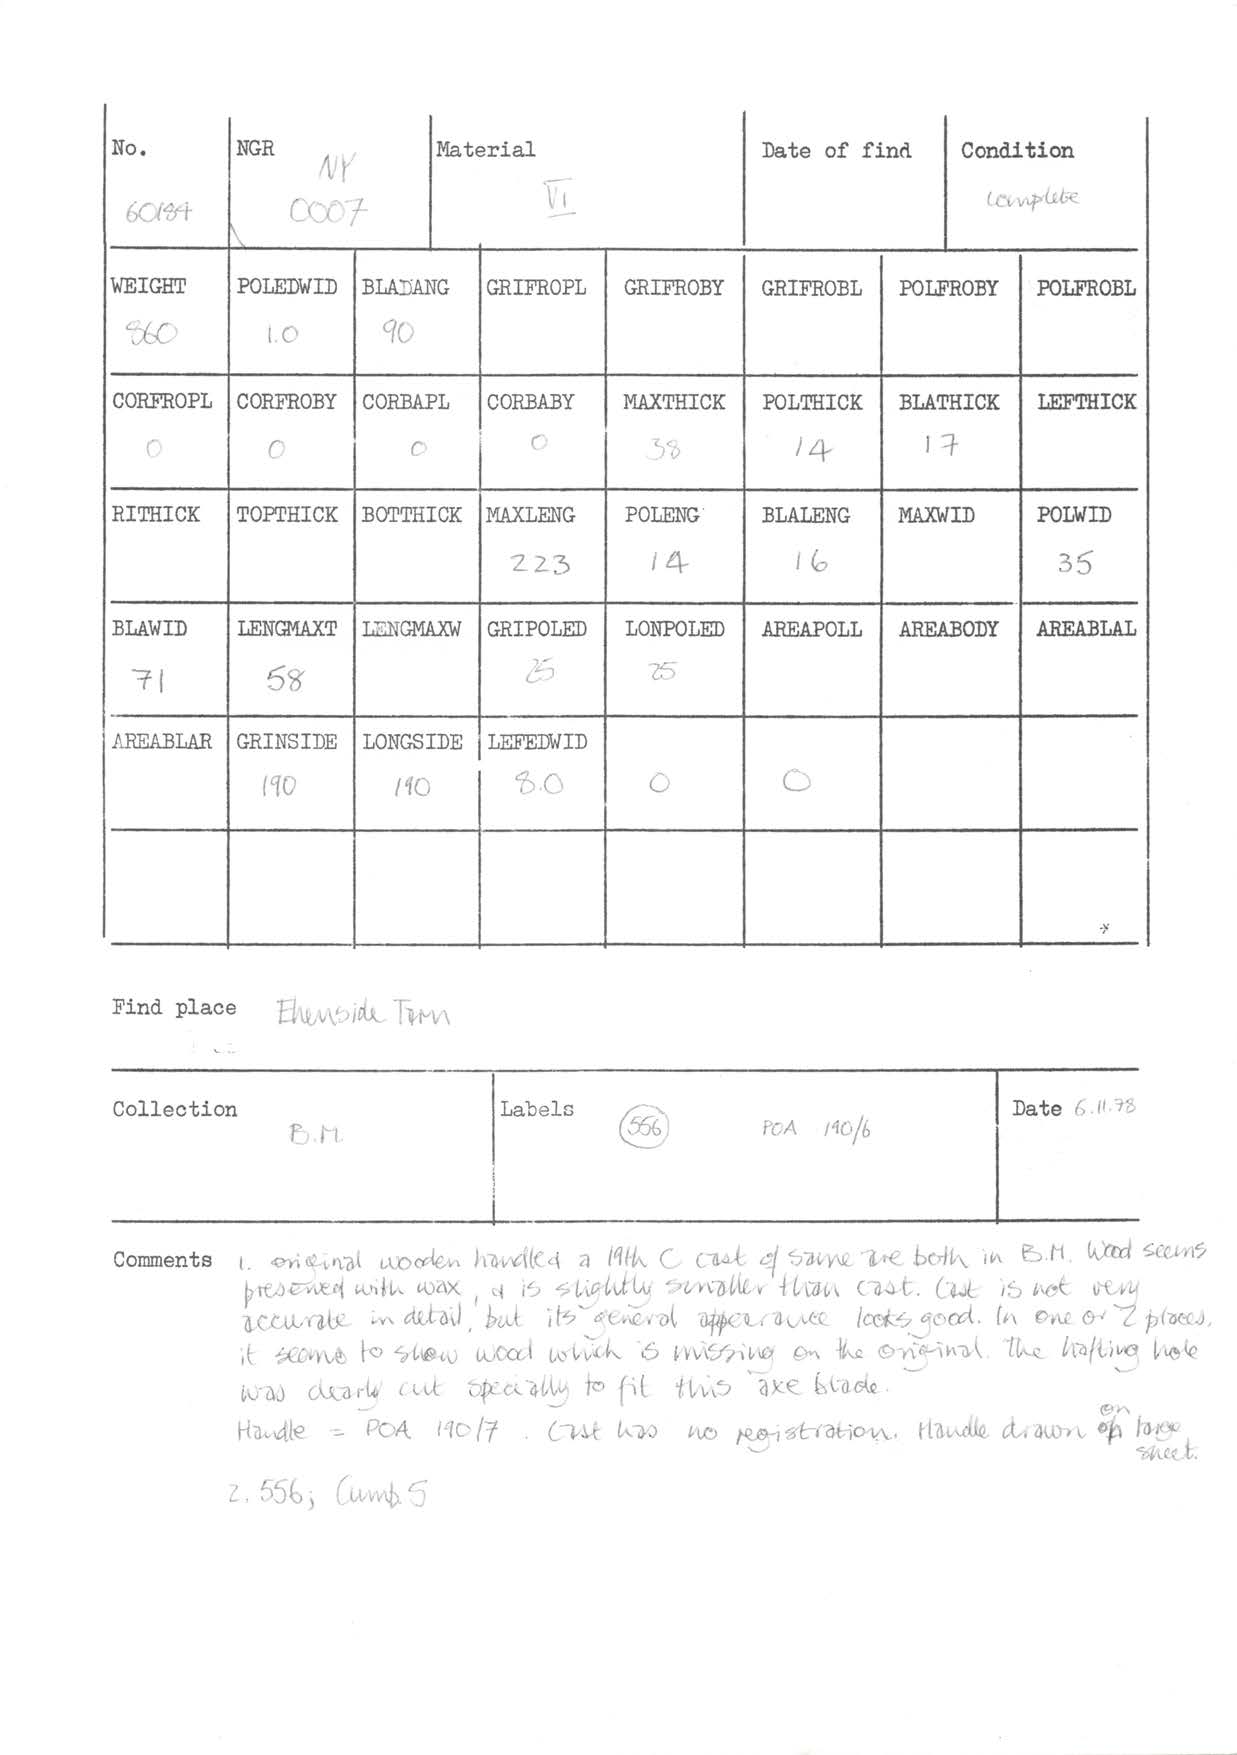 No. NGR Material Date of find Condition
NY
60184 0007 VI complete
WEIGHT POLEDWID BLADANG GRIFROPL GRIFROBY GRIFROBL POLFROBY POLFROBL
860 1.0 90
CORFROPL CORFROBY CORBAPL CORBABY MAXTHICK POLTHICK BLATHICK LEFTHICK
0 0 0 0 38 14 17
RITHICK TOPTHICK BOTTHICK MAXLENG POLENG BLALENG MAXWID POLWID
223 14 16 35
BLAWID LENGMAXT LENGMAXW GRIPOLED LONPOLED AREAPOLL AREABODY AREABLAL
71 58 25 25
AREABLAR GRINSIDE LONGSIDE LEFEDWID
190 190 8.0 0 0
Find place Ehenside Tarn
Collection Labels Date 6.11.78
B.M. 556 POA 190/6
Comments 1. original wooden handle & a 19th C cast of same are both in B.M. Wood seems
preserved with wax, & is slightly smaller than cast. Cast is not very
accurate in detail, but its general appearance looks good. In one or 2 places,
it seems to show wood which is missing on the original. The hafting hole
was clearly cut specially to fit this axe blade.
Handle = POA 190/7. Cast has no registration. Handle drawn on large
sheet.
2. 556; Cumb. 5